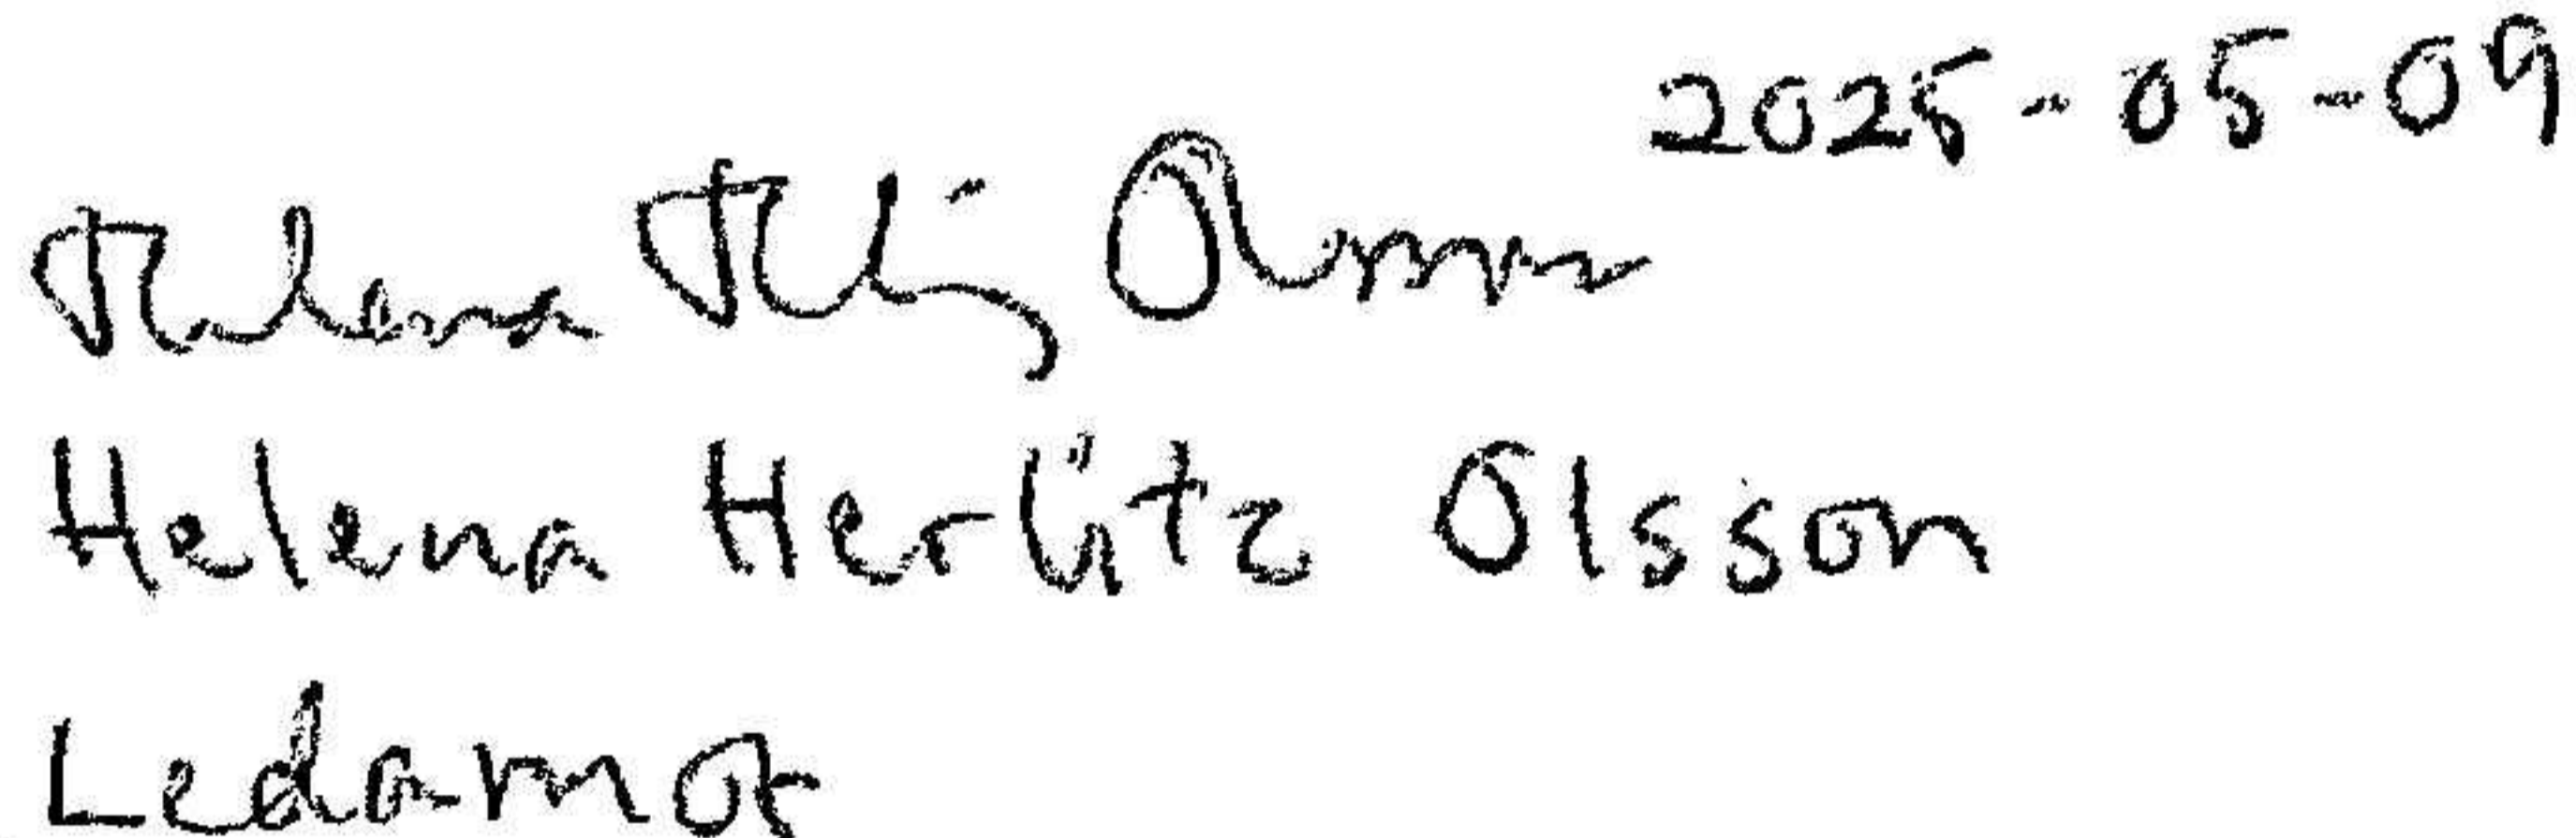 2025-05-09
Helena Herlitz Olsson
Helena Herlitz Olsson
Ledamot